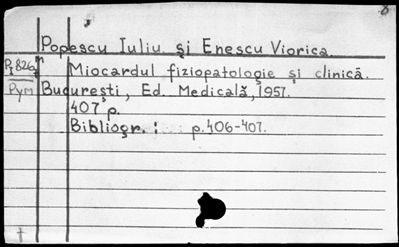 Popescu Iuliu și Enescu Viorica
Miocardul fiziopatologie și clinică.
Pym București, Ed. Medicală, 1957.
407 p.
Bibliogr. : p. 406-407.